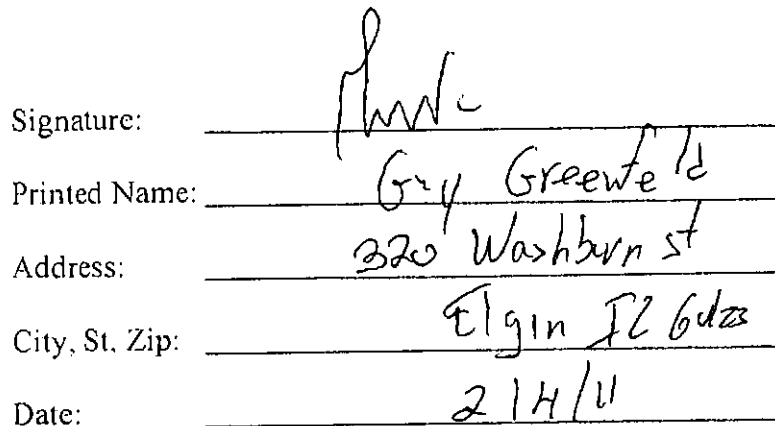 Signature:
Printed Name: Guy Greenfeld
Address: 320 Washburn st
City, St, Zip: Elgin IL
Date: 2/4/11